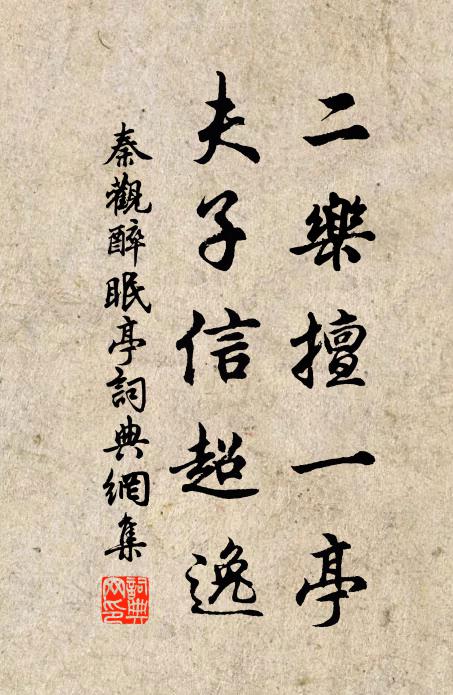 二樂擅一亭
夫子信超逸
秦觀醉眠亭詞典網集
詞典网印